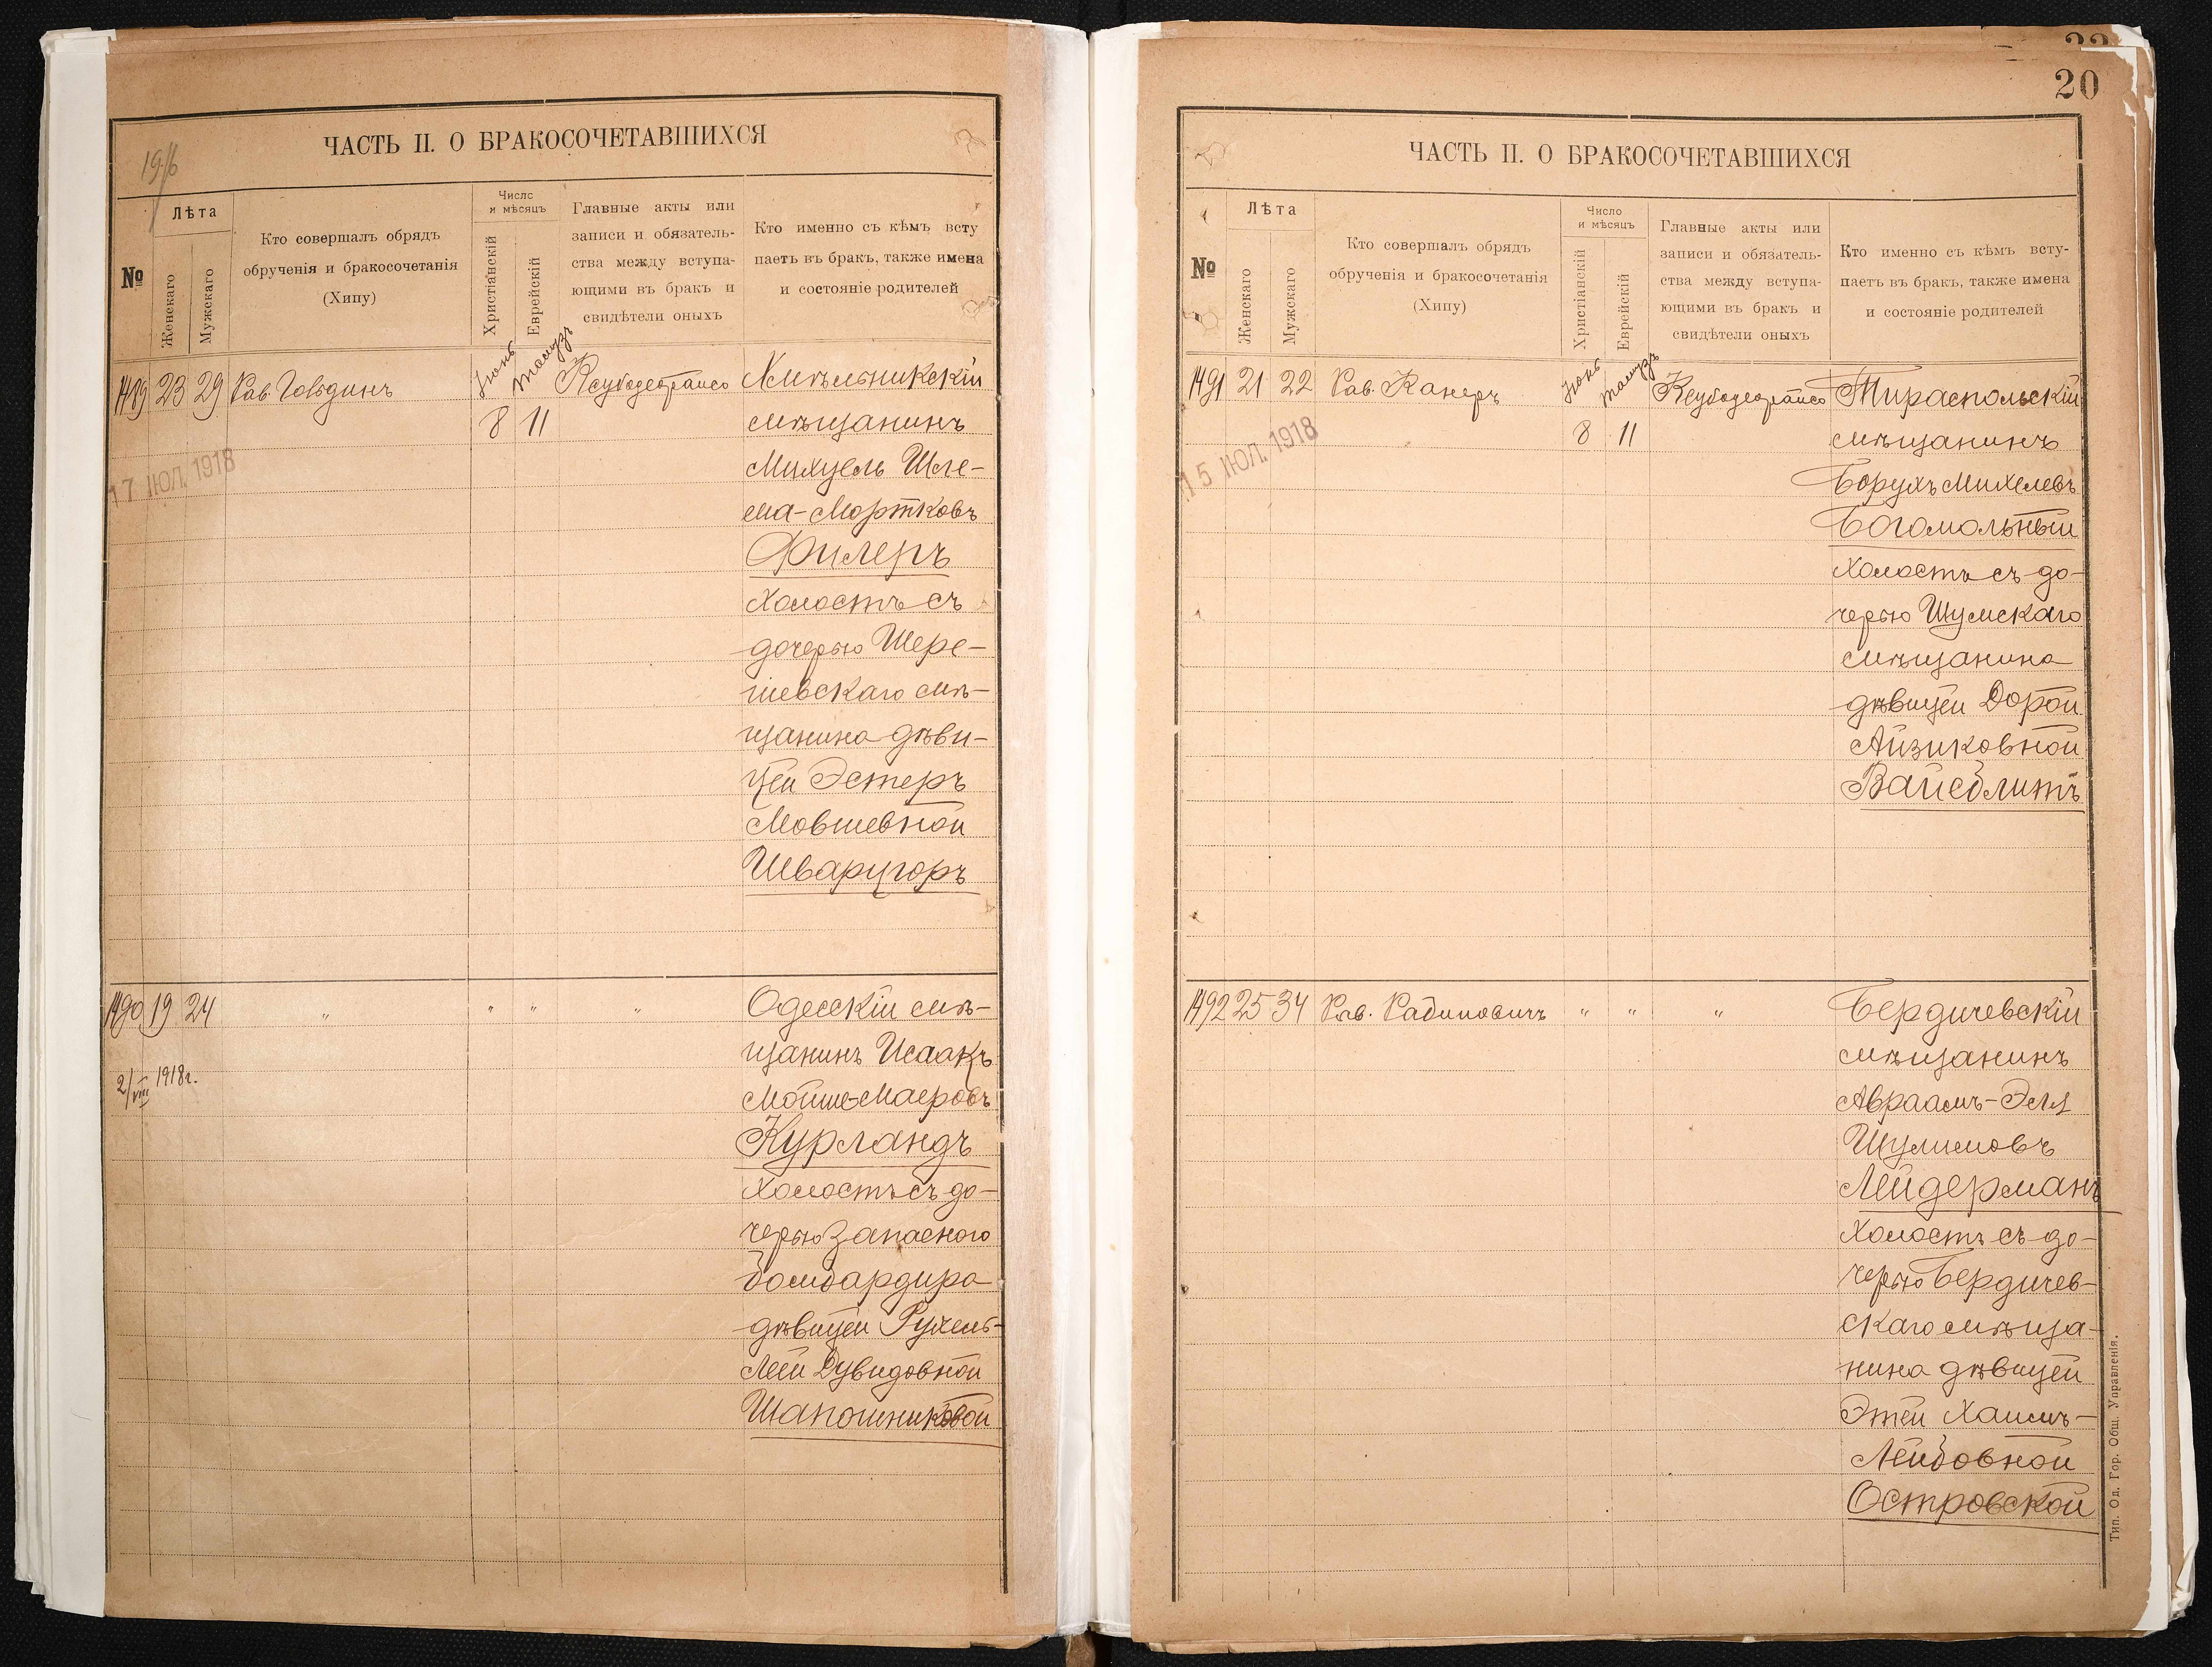 ЧАСТЬ II. О БРАКОСОЧЕТАВШИХСЯ
№
Лѣта
Женскаго
Мужскаго
Кто совершалъ обрядъ
обрученія и бракосочетанія
(Хипу)
Число
и мѣсяцъ
Христіанскій
Еврейскій
Главные акты или
записи и обязатель-
ства между вступа-
ющими въ бракъ и
свидѣтели оныхъ
Кто именно съ кѣмъ всту
паетъ въ бракъ, также имена
и состояніе родителей
1489 23 29 Рав. Іюнь Тамузъ Хмѣльникскій
8 11 мѣщанинъ
17 ІЮЛ. 1918
Михуель Шле-
ма-Мортковъ
Филеръ
холостъ съ
дочерью Шере-
шевскаго мѣ-
щанина дѣви-
цей Эстеръ
Мовшевной
Шварцгоръ
1490 19 24 " " " " Одесскій мѣ-
щанинъ Исаакъ
2/VIII 1918г.
Мойше-Маеровъ
Курландъ
холостъ съ до-
черью запасного
бомбардира
дѣвицей Рухель-
Леей Дувидовной
Шапошниковой
20
ЧАСТЬ II. О БРАКОСОЧЕТАВШИХСЯ
№
Лѣта
Женскаго
Мужскаго
Кто совершалъ обрядъ
обрученія и бракосочетанія
(Хипу)
Число
и мѣсяцъ
Христіанскій
Еврейскій
Главные акты или
записи и обязатель-
ства между вступа-
ющими въ бракъ и
свидѣтели оныхъ
Кто именно съ кѣмъ всту-
паетъ въ бракъ, также имена
и состояніе родителей
1491 21 22 Рав. Канеръ Іюнь Тамузъ Тираспольскій
8 11 мѣщанинъ
15 ІЮЛ. 1918
Борухъ Михелевъ
Богомольный
холостъ съ до-
черью Шумскаго
мѣщанина
дѣвицей Дорой
Айзиковной
Вайсблитъ
1492 25 34 Рав. Рабиновичъ " " " Бердичевскій
мѣщанинъ
Авраамъ-Эля
Шулимовъ
Лейдерманъ
холостъ съ до-
черью Бердичев-
скаго мѣща-
нина дѣвицей
Этей Хаимъ-
Лейбовной
Островской
Тип. Од. Гор. Общ. Управленія.